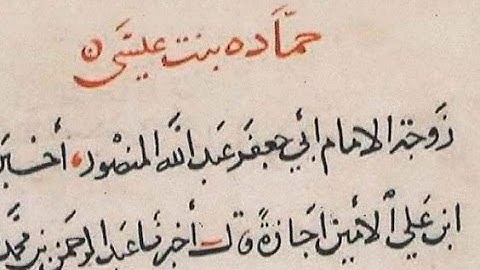 حمّادة بنت عيسَى ۞
زَوجة الامام أبي جعفَر عَبد اللَّه المنصُور، أخبَر
ابن عَلي الأمين اجَازةً قالت أخبرنا عبد الرحمن بن محمَّد